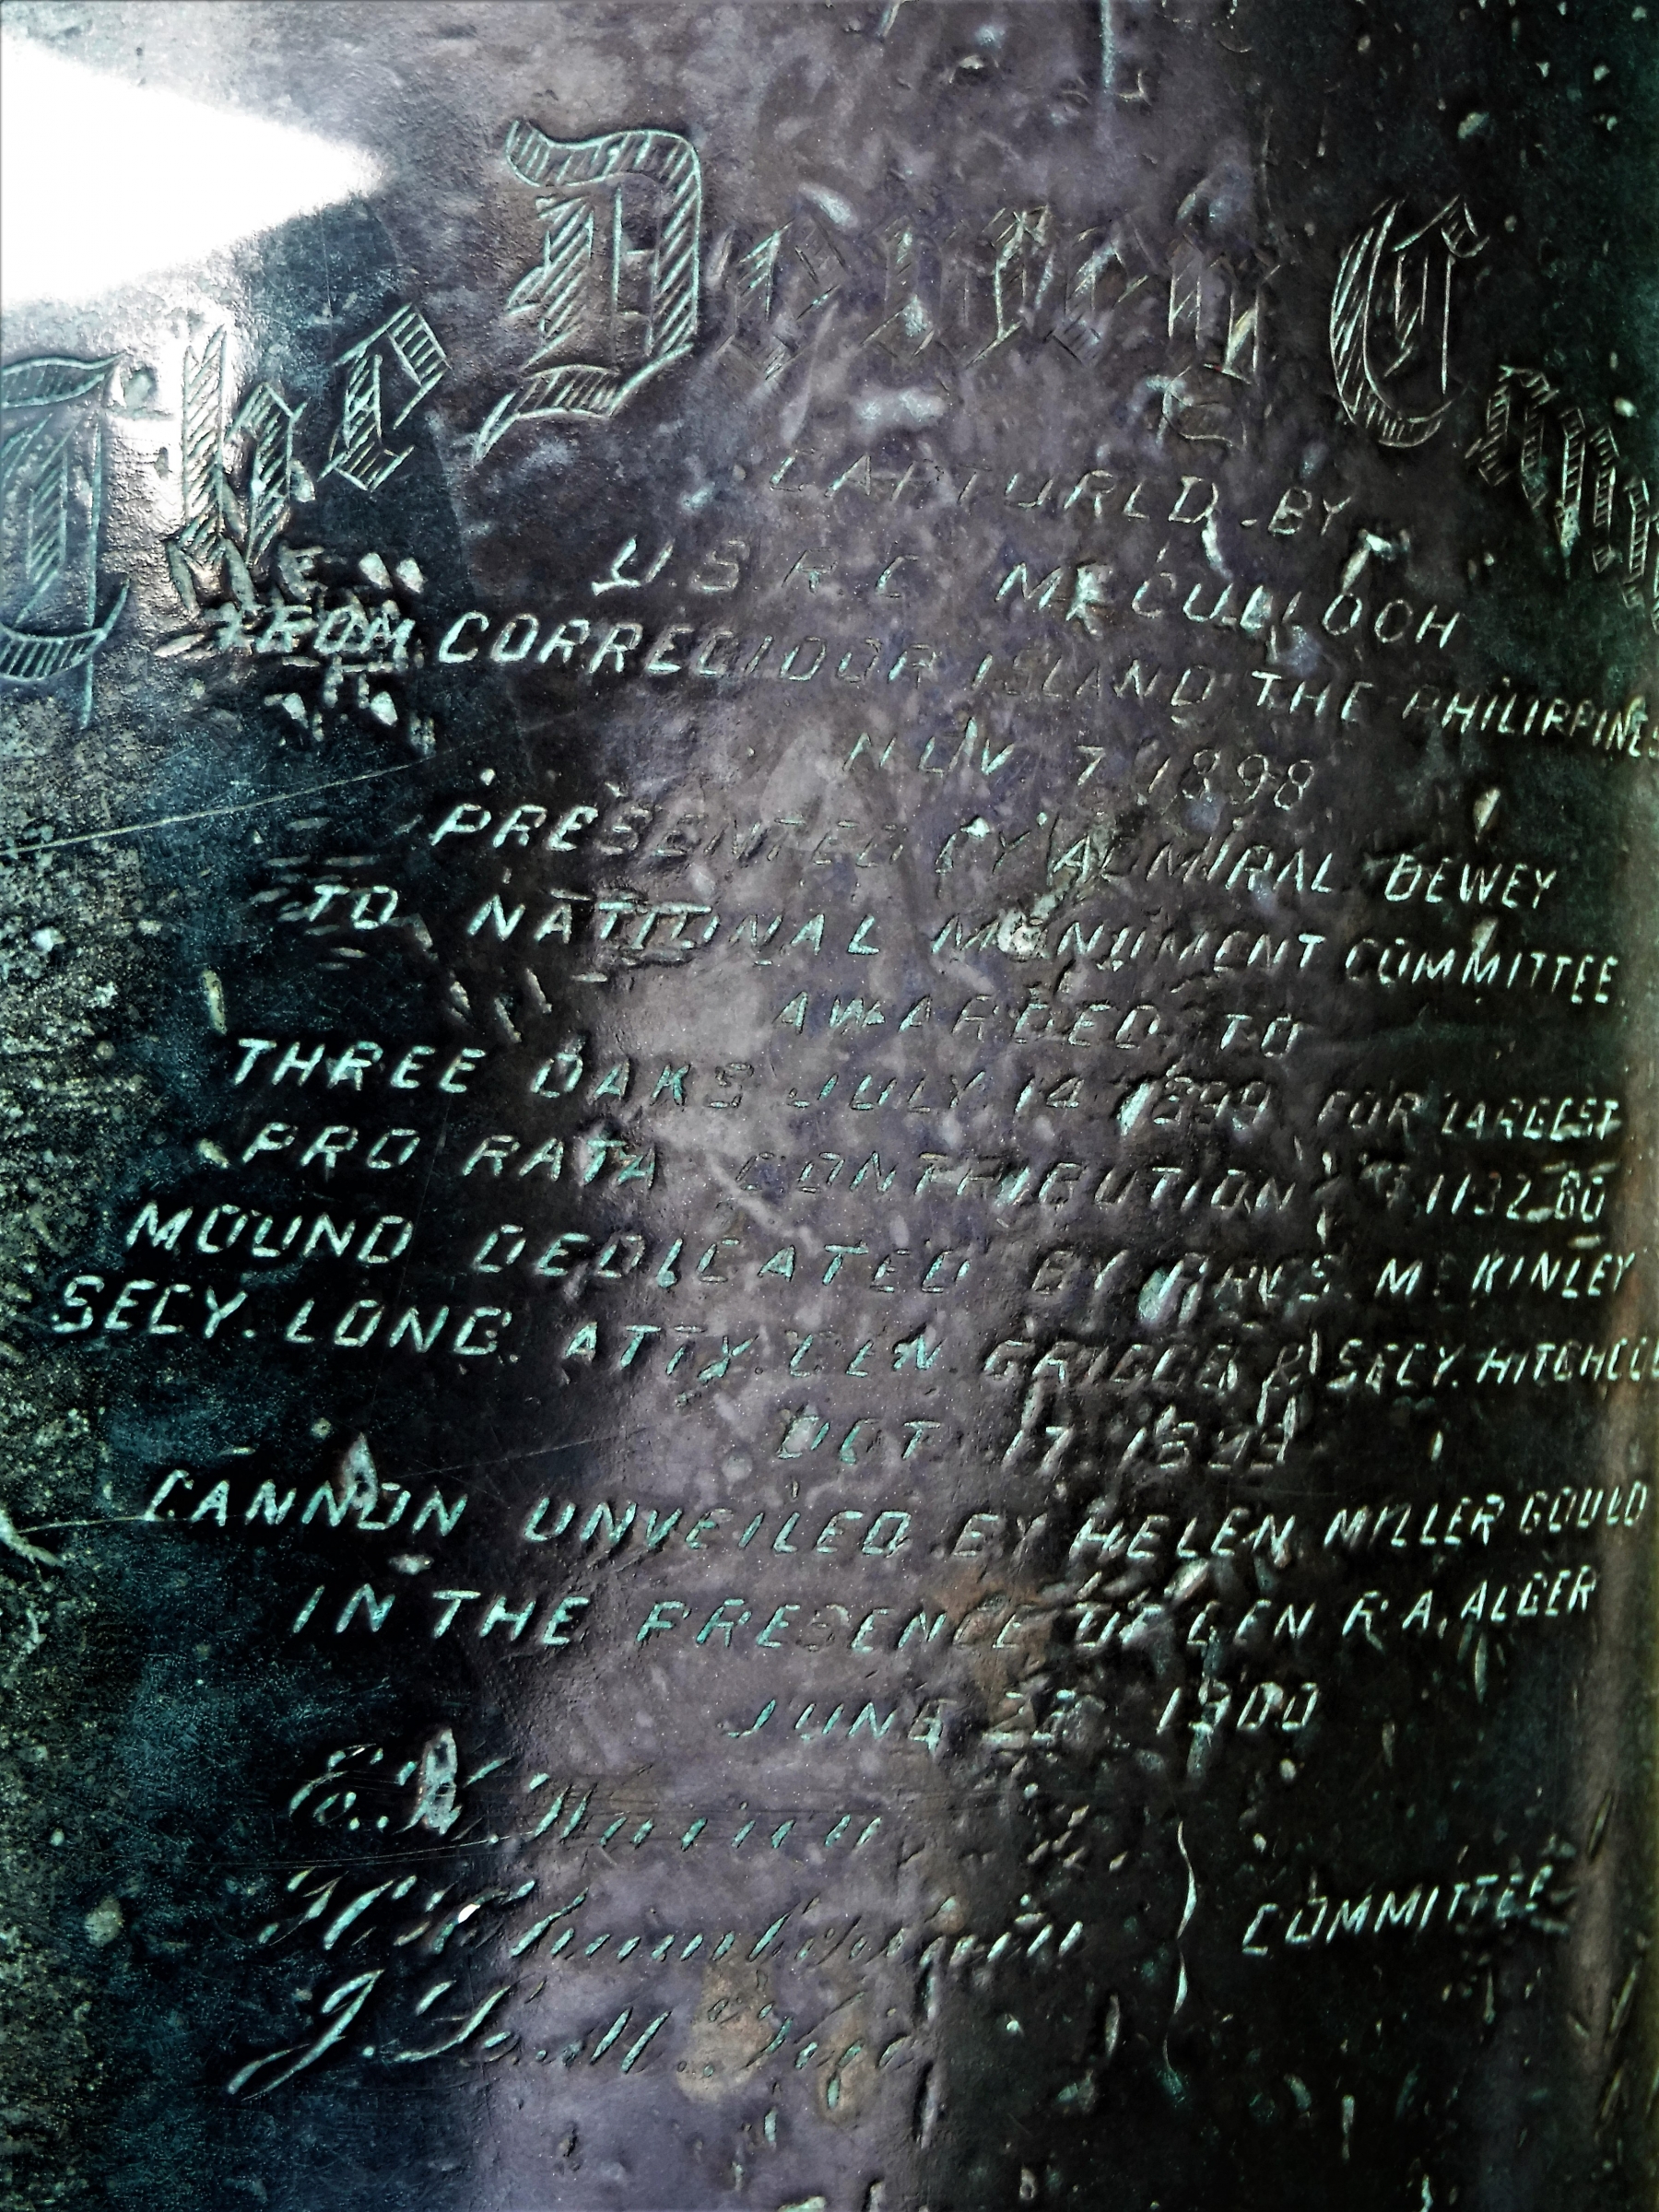 The Dewey Cannon
CAPTURED BY
U.S.R.C. McCULLOCH
FROM CORREGIDOR ISLAND THE PHILIPPINES
NOV. 7 1898
PRESENTED BY ADMIRAL DEWEY
TO NATIONAL MONUMENT COMMITTEE.
AWARDED TO
THREE OAKS JULY 14 1899 FOR LARGEST
PRO RATA CONTRIBUTION $1132.80
MOUND DEDICATED BY PRES. McKINLEY
SECY. LONG. ATTY. GEN. GRIGGS & SECY. HITCHCOCK
OCT. 17. 1899
CANNON UNVEILED BY HELEN MILLER GOULD
IN THE PRESENCE OF GEN R.A. ALGER
JUNE 1900
E. K. Warren
COMMITTEE